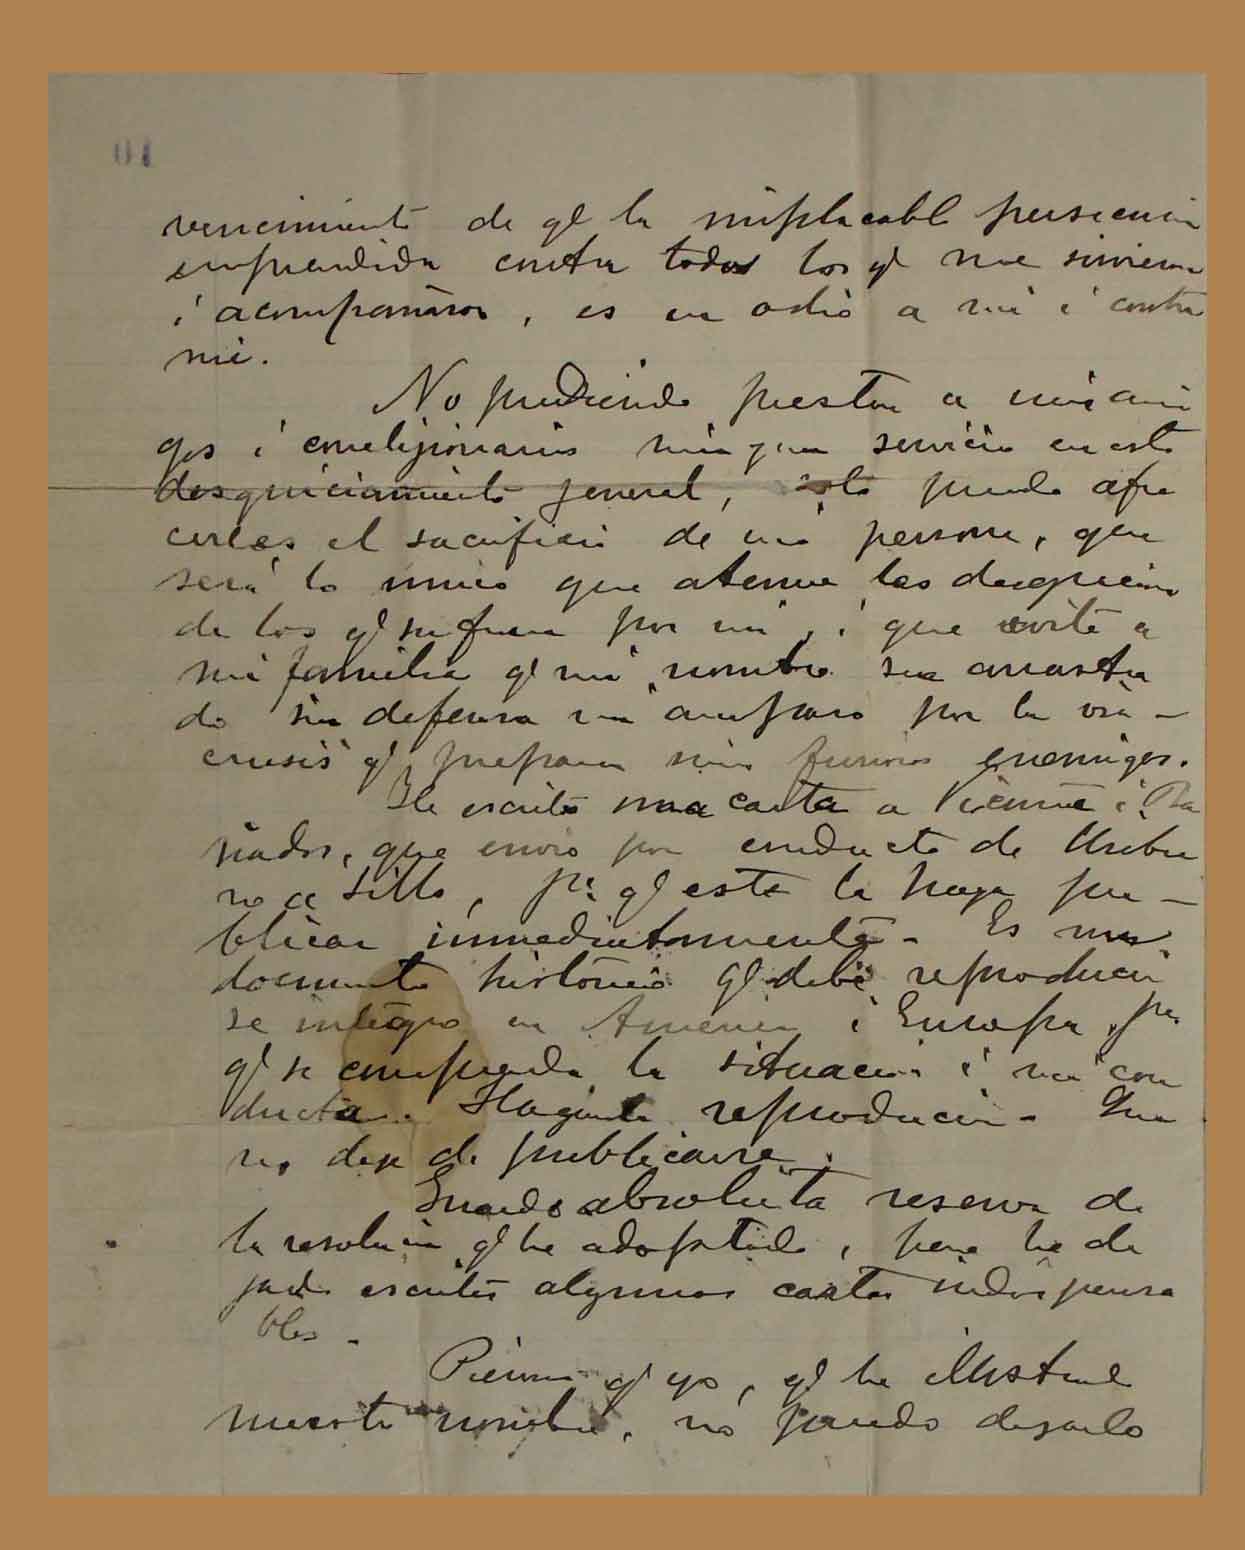 01
vencimiento de qe la implacable persecución
emprendida contra todos los qe me sirvieron
i acompañaron, es en odio a mi i contra
mi.
No pudiendo prestar a mis ami
gos i correlijionarios ningun servicio en este
desquiciamiento jeneral, solo puedo ofre
cerles el sacrificio de mi persona, que
será lo unico que atenue las desgracias
de los qe sufren por mi, i que evite a
mi familia qe mi nombre sea arrastra
do sin defensa ni amparo por la via-
crusis qe preparan mis furiosos enemigos.
He escrito una carta a Vicuña i Ba
ñados, que envio por conducto de Uribu
ro a Lillo, pa qe este la haga pu-
blicar inmediatamente. Es un
documento histórico qe debe reproducir
se integro en America i Europa, pa
qe se comprenda la situacion i mi con
ducta. Haganla reproducir. Que
no deje de publicarse.
Guardo absoluta reserva de
la resolucion qe he adoptado, pero he de
jado escritas algunas cartas indispensa
bles.
Piensen qe yo, qe he ilustrado
nuestro nombre, no puedo dejarlo